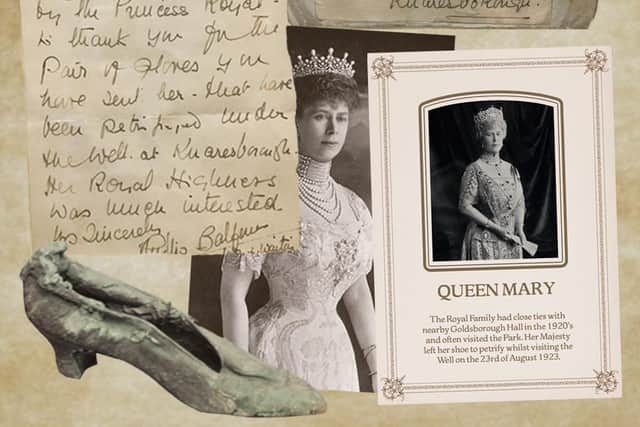 by the Princess Royal -
to thank you for the
Pair of Gloves you
have sent her - that have
been Petrifyed under
the Well. at Knaresborough.
Her Royal Highness
was much interested.
Yrs Sincerely
Balfour
in waiting
Knaresborough.
QUEEN MARY
The Royal Family had close ties with
nearby Goldsborough Hall in the 1920's
and often visited the Park. Her Majesty
left her shoe to petrify whilst visiting the
Well on the 23rd of August 1923.